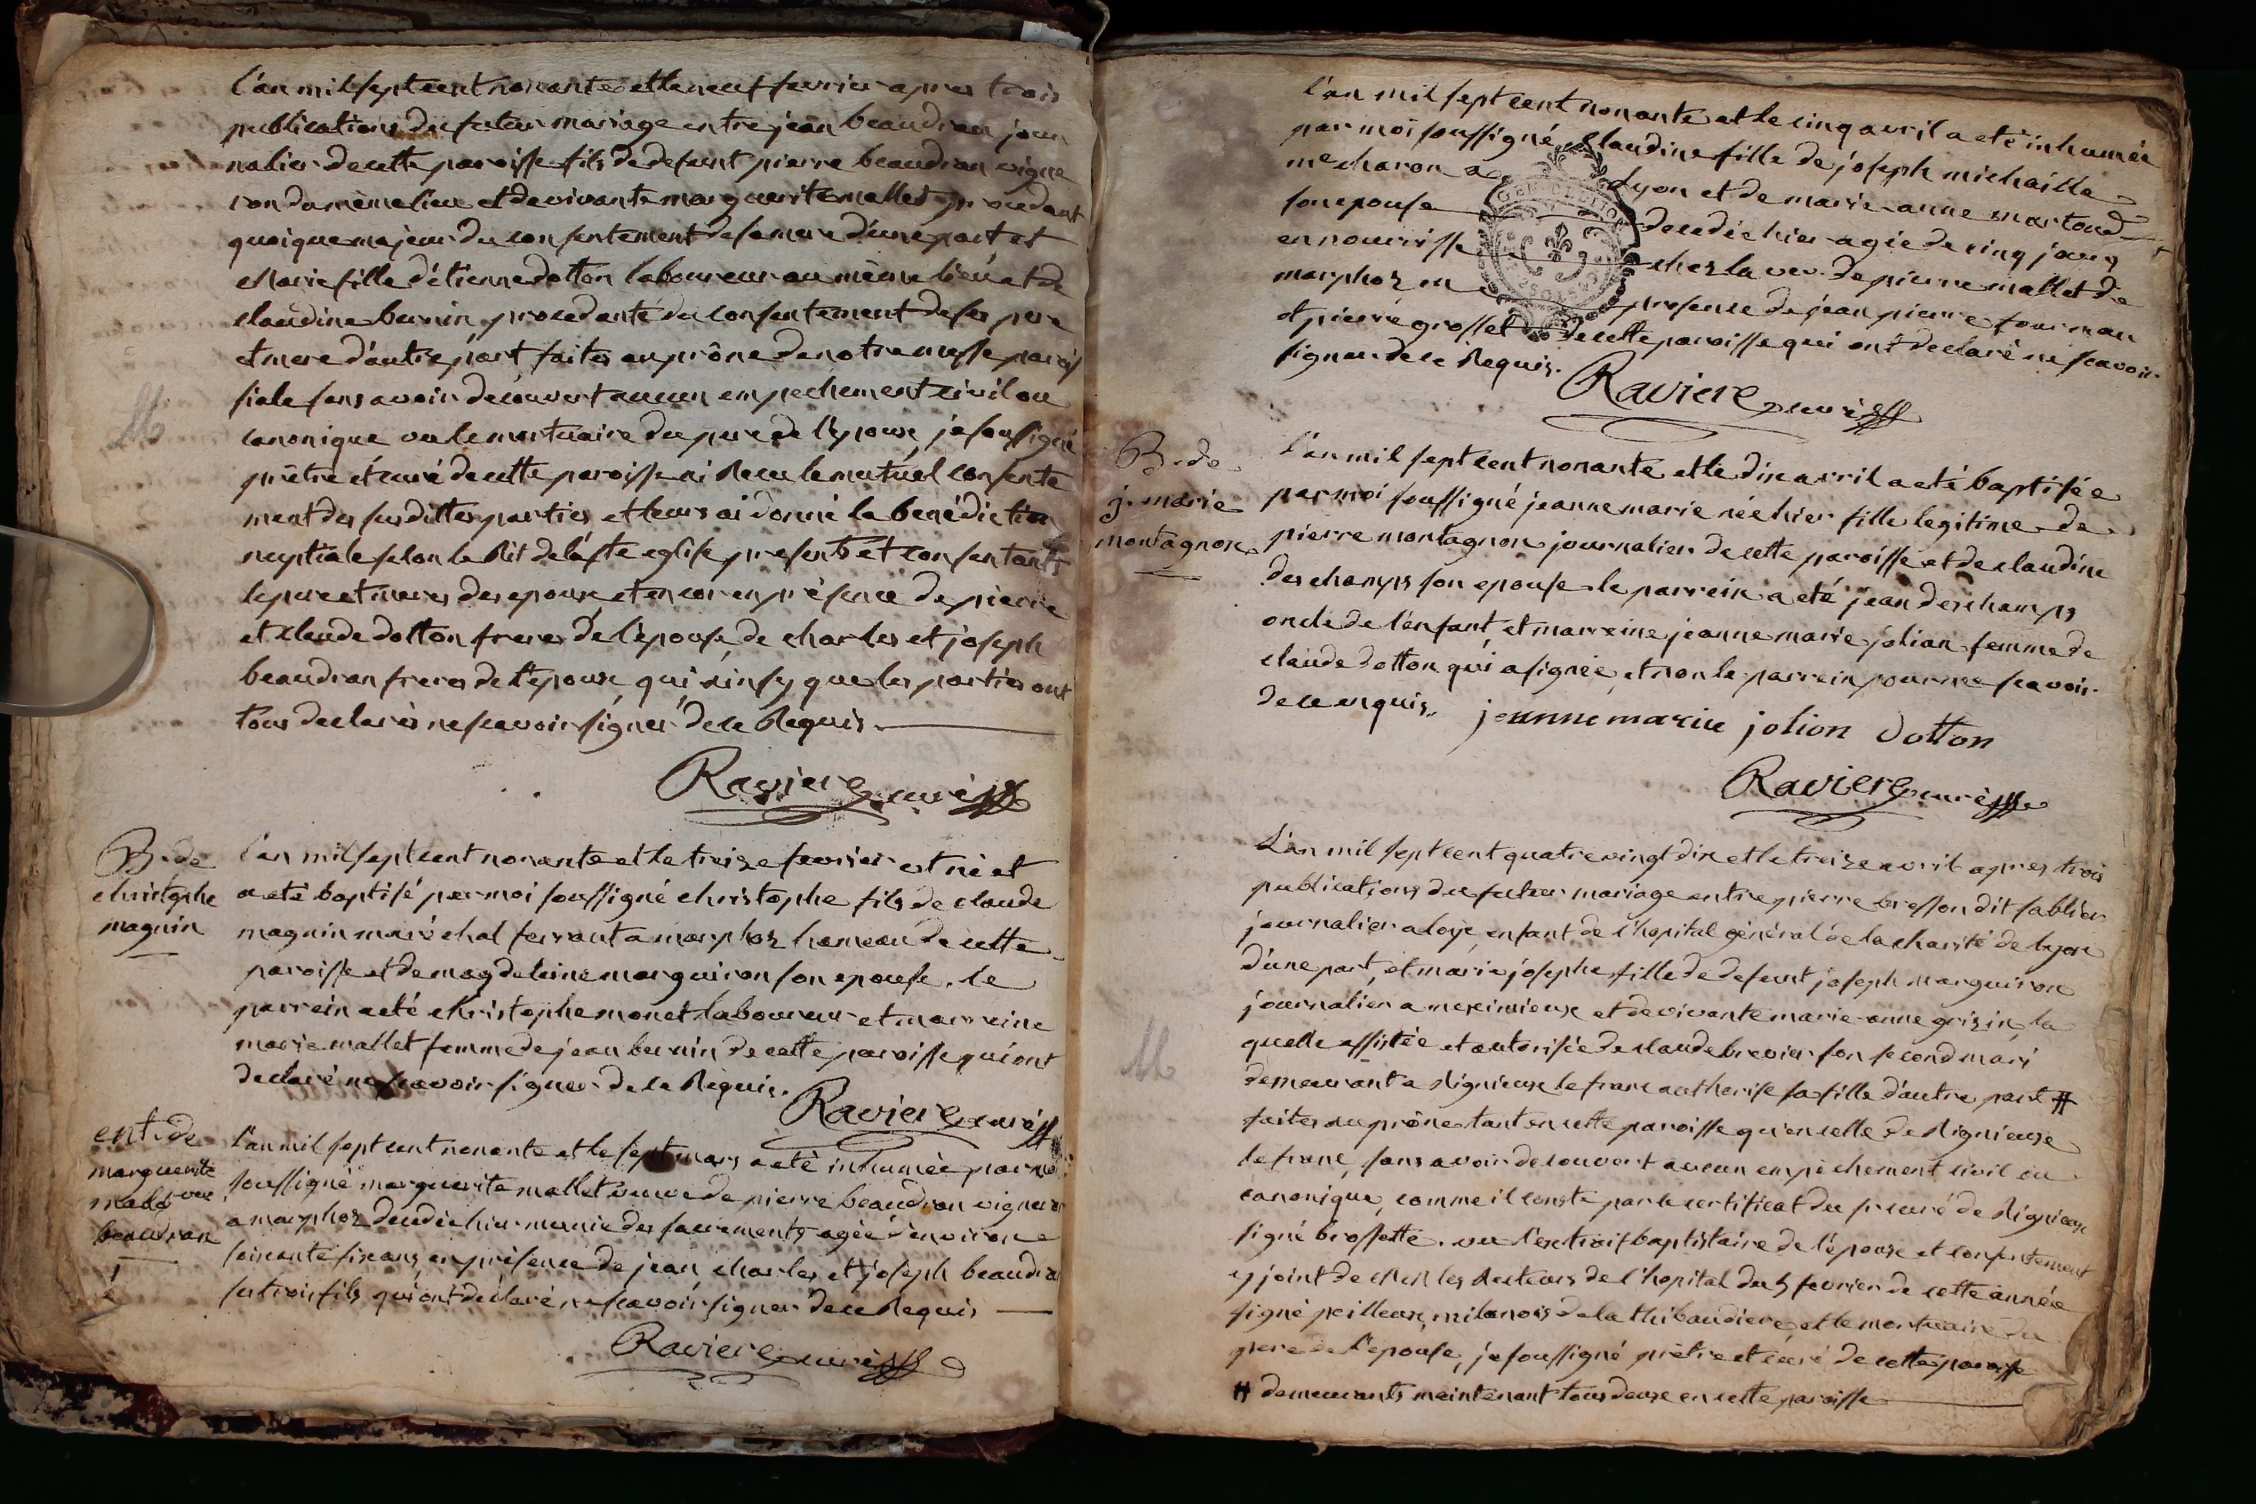 l'an mil sept cent nonante et le neuf fevrier apres trois
publications du futeur mariage entre jean beaudran jour
nalier de cette paroisse fils de defeunt pierre beaudran vigne
ron du même lieu et de vivante marguerite mallet procedant
quoique majeur du consentement de sa mere d'une part et
Marie fille d'étienne dotton laboureur au même lieu et de
claudine burnin procedante du consentement de ses pere
et mere d'autre part faites au prône de notre messe parois
siale sans avoir decouvert aucun empechement civil ou
M
canonique vu le mortuaire du pere de l'epoux je soussigné
prêtre et curé de cette paroisse ai Recu le mutuel consente
ment des susdittes parties et leurs ai donné la benédiction
nuptiale selon le Rit de la ste eglise presents et consentants
le pere et meres des epoux et encor en présence de pierre
et claude dotton freres de l'épouse, de charles et joseph
beaudran freres de l'epoux qui ainsy que les parties ont
tous declarés ne scavoir signer de ce Requis.
Raviere curé
B. de
christophe
magnin
l'an mil sept cent nonante et le treize fevrier est né et
a eté baptisé par moi soussigné christophe fils de claude
magnin maréchal ferrant a marphoz hameau de cette
paroisse et de magdeleine marguiron son epouse. le
parrein a eté christophe monet laboureur et marreine
marie mallet femme de jean burnin de cette paroisse qui ont
declaré ne scavoir signer de ce Requis.
Raviere curé
ent. de
marguerite
malet vve
beaudran
l'an mil sept cent nonante et le sept mars a eté inhumée par moi
soussigné marguerite mallet veuve de pierre beaudran vigneron
a marphoz decedée hier munie des sacrements agée d'environ
soixante six ans, en présence de jean, charles et joseph beaudran
ses trois fils qui ont déclaré ne scavoir signer de ce Requis
Raviere curé
l'an mil sept cent nonante et le cinq avril a eté inhumée
par moi soussigné claudine fille de joseph michaille
me charon a Lyon et de marie anne martoud
son epouse decedée hier agée de cinq jours
en nourrisse chez la vve de pierre mallet de
marphoz en presence de jean pierre fournan
et pierre grosset de cette paroisse qui ont declaré ne scavoir
signer de ce Requis.
Raviere curé
B. de
j. marie
montagnon
l'an mil sept cent nonante et le dix avril a eté baptisée
par moi soussigné jeanne marie née hier fille legitime de
pierre montagnon journalier de cette paroisse et de claudine
deschamps son epouse. le parrein a eté jean deschamps
oncle de l'enfant, et marreine jeanne marie jolian femme de
claude dotton qui a signée, et non le parrein pour ne scavoir
de ce enquis.
jeanne marie jolion dotton
Raviere curé
L'an mil sept cent quatre vingt dix et le treize avril apres trois
publications du futeur mariage entre pierre bresson dit sablier
journalier a loye, enfant de l'hopital général de la charité de lyon
d'une part, et marie josephe fille de defeunt joseph marguiron
journalier a meximieux et de vivante marie anne grizin, la
M
quelle assistée et autorisée de claude brevier son second mari
demeurant a Rignieux le franc autherise sa fille d'autre part #
faites au prône tant en cette paroisse qu'en celle de Rignieux
le franc, sans avoir decouvert aucun empêchement civil ou
canonique, comme il conste par le certificat du sr curé de Rignieux
signé brossette. vu l'extrait baptistaire de l'epoux et consentement
cy joint de MM les Recteurs de l'hopital du 5 fevrier de cette année
signé peilleux, milanois de la thibaudiere, et le mortuaire du
pere de l'epouse, je soussigné prêtre et curé de cette paroisse
# demeurants maintenant tous deux en cette paroisse